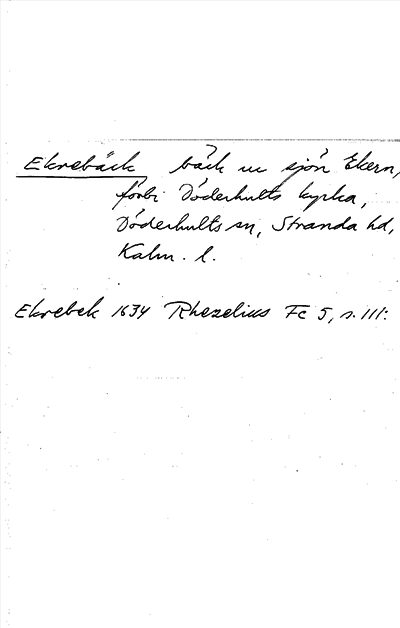 Ekrebäck bäck ur sjön Ekern,
förbi Döderhults kyrka,
Döderhults sn, Stranda hd,
Kalm. l.
Ekrebek 1634 Rhezelius Fc 5, s. 111: